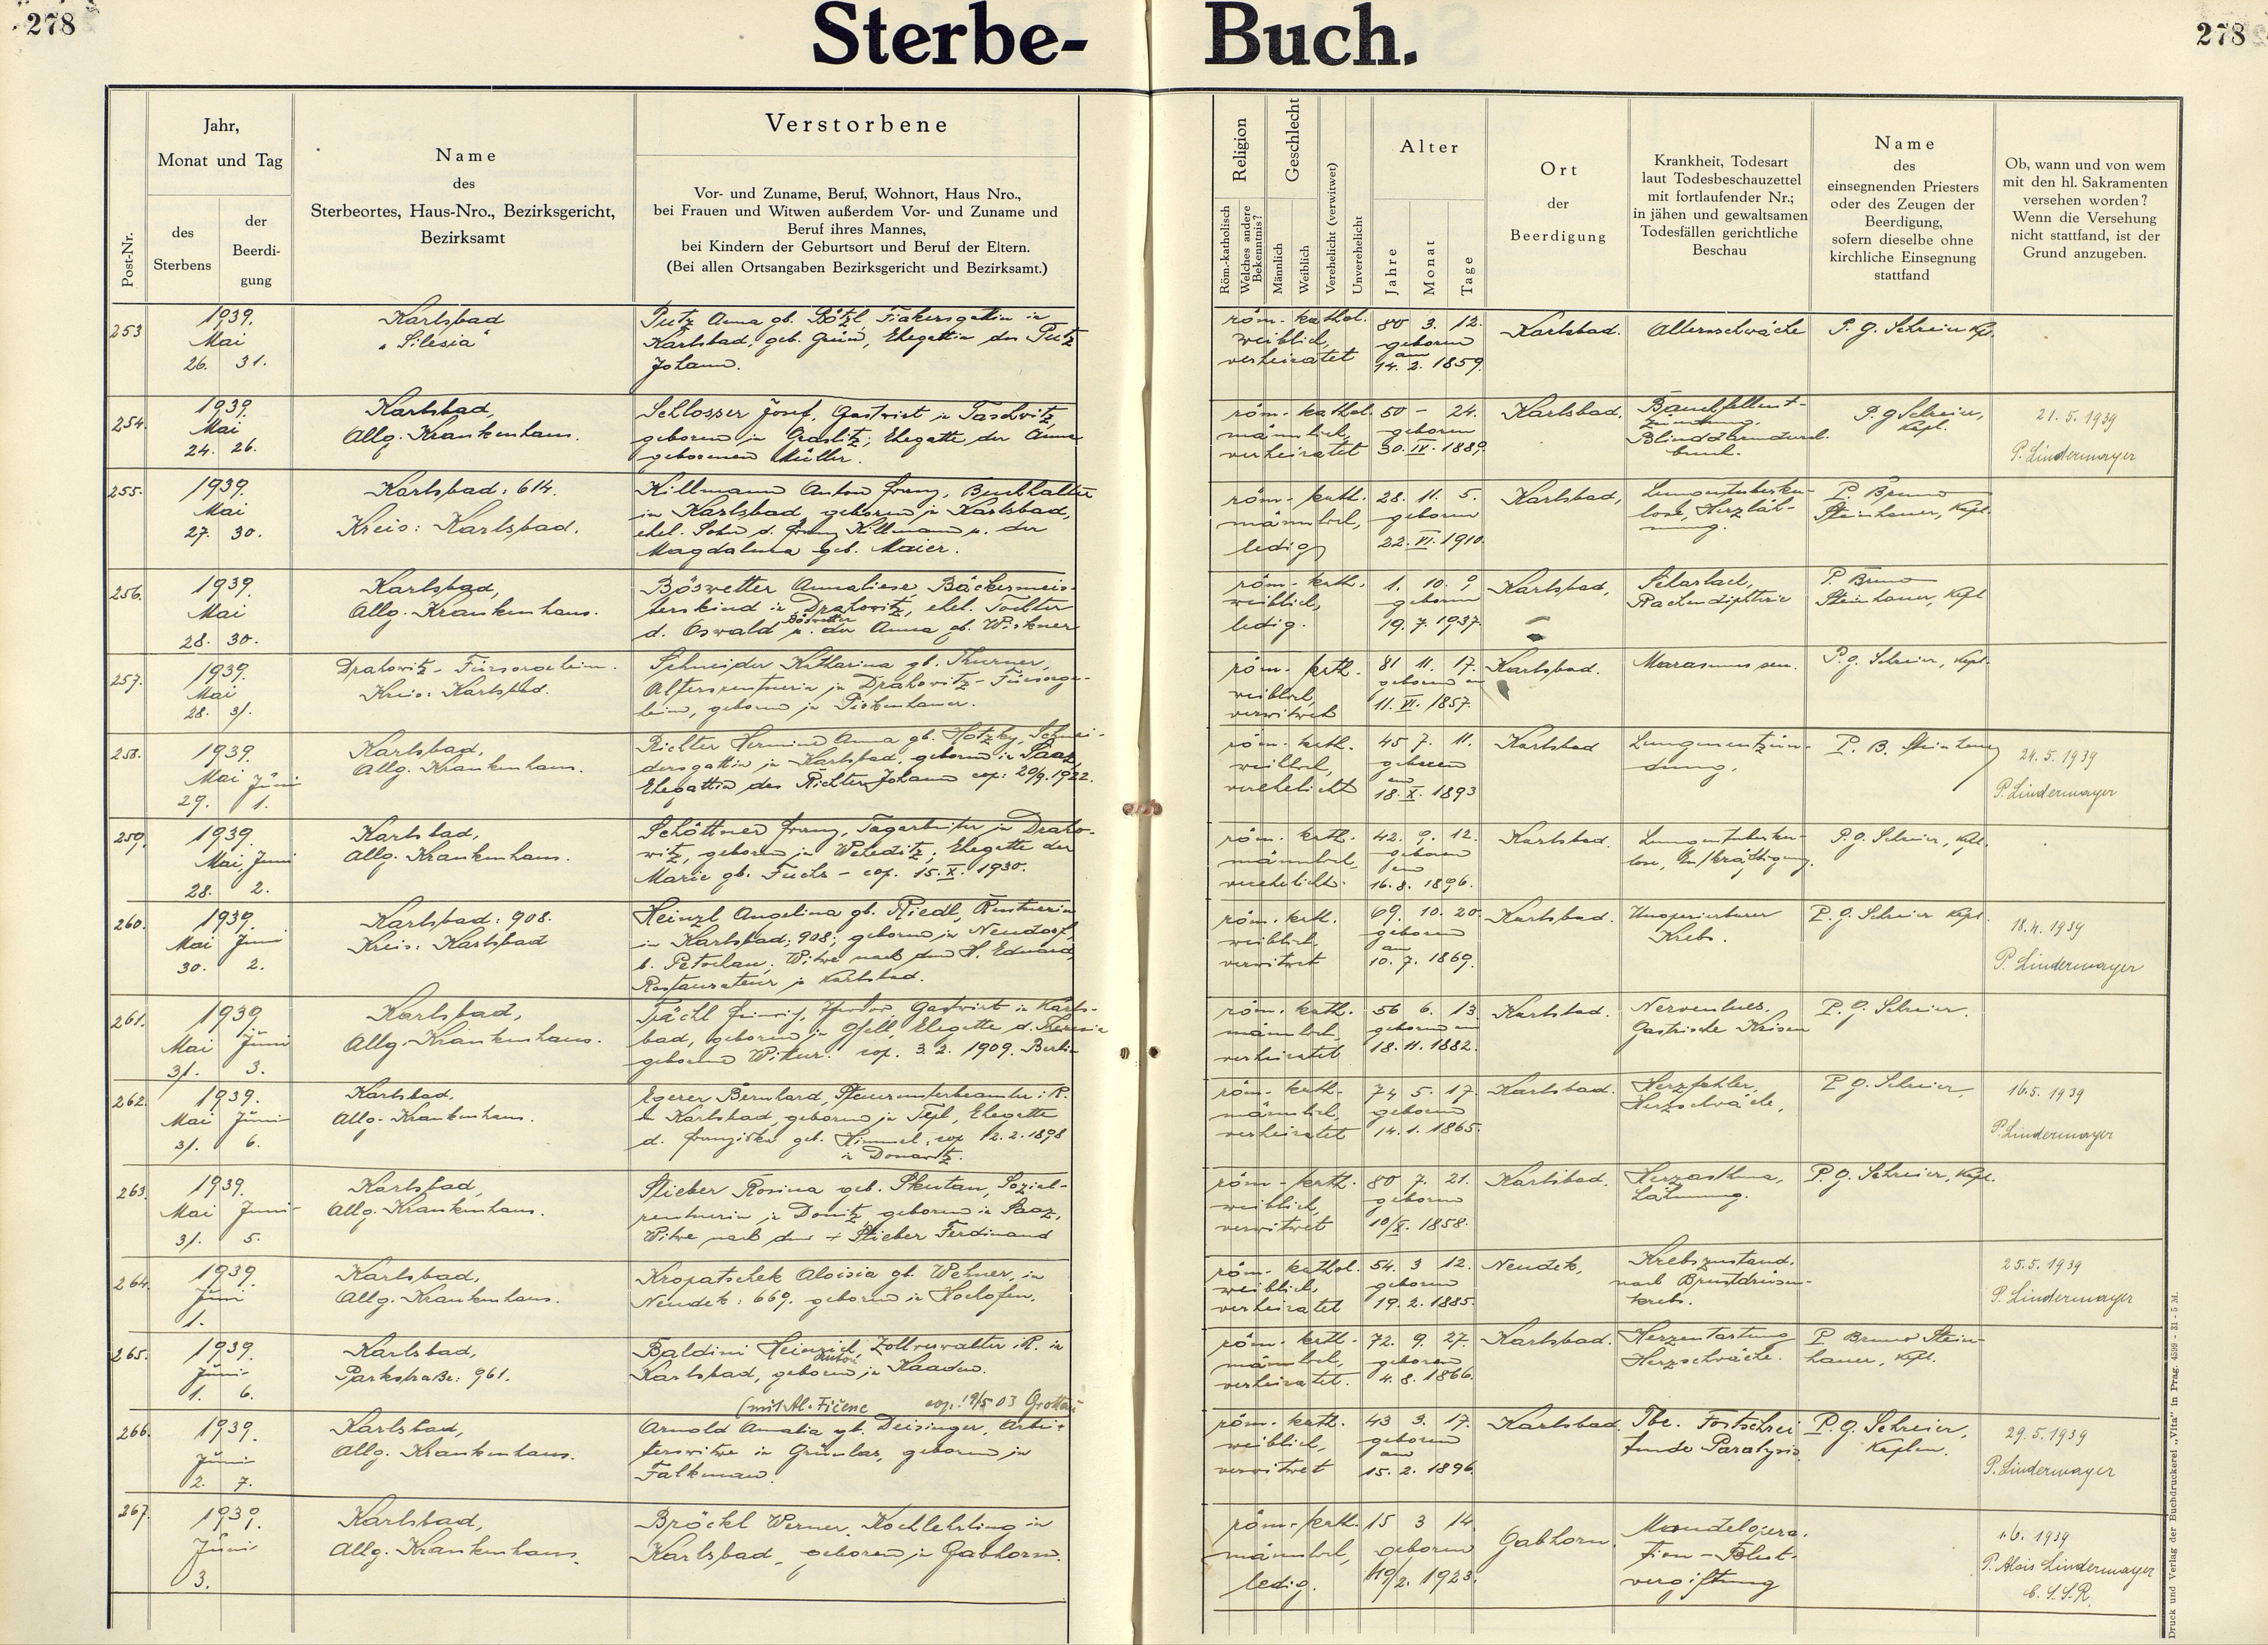 278
Sterbe-
Buch.
278
Post-Nr.
Jahr,
Monat und Tag
des
Sterbens
der
Beerdi-
gung
Name
des
Sterbeortes, Haus-Nro., Bezirksgericht,
Bezirksamt
Verstorbene
Vor- und Zuname, Beruf, Wohnort, Haus Nro.,
bei Frauen und Witwen außerdem Vor- und Zuname und
Beruf ihres Mannes,
bei Kindern der Geburtsort und Beruf der Eltern.
(Bei allen Ortsangaben Bezirksgericht und Bezirksamt.)
Religion
Röm.-katholisch
Welches andere
Bekenntnis?
Geschlecht
Männlich
Weiblich
Verehelicht (verwitwet)
Unverehelicht
Alter
Jahre
Monat
Tage
Ort
der
Beerdigung
Krankheit, Todesart
laut Todesbeschauzettel
mit fortlaufender Nr.;
in jähen und gewaltsamen
Todesfällen gerichtliche
Beschau
Name
des
einsegnenden Priesters
oder des Zeugen der
Beerdigung,
sofern dieselbe ohne
kirchliche Einsegnung
stattfand
Ob, wann und von wem
mit den hl. Sakramenten
versehen worden?
Wenn die Versehung
nicht stattfand, ist der
Grund anzugeben.
253
1939.
Mai
26. 31.
Karlsbad
"Silesia"
Putz Anna gb. Fiakersgattin in
Karlsbad, geb. Ehegattin des Putz
Johann.
röm. kathol.
weiblich,
verheiratet
80 3. 12.
geboren
am
14. 2. 1859.
Karlsbad.
Altersschwäche
P. G. Schreier Kpl.
254.
1939.
Mai
24. 26.
Karlsbad,
Allg. Krankenhaus.
Schlosser Josef, Gastwirt in Taschwitz,
geboren in Graslitz; Ehegatte der Anna
geborenen Müller.
röm. kathol.
männlich,
verheiratet
50 - 24.
geboren
30. IV. 1889.
Karlsbad.
Bauchfellent-
zündung,
Blinddarmdurch-
bruch.
P. G. Schreier,
Kapl.
21. 5. 1939
P. Lindermayer
255.
1939.
Mai
27. 30.
Karlsbad: 614.
Kreis: Karlsbad.
Killmann Anton Franz, Buchhalter
in Karlsbad, geboren in Karlsbad,
ehel. Sohn d. Franz Killmann u. der
Magdalena geb. Maier.
röm. kath.
männlich,
ledig
28. 11. 5.
geboren
22. VI. 1910.
Karlsbad,
Lungentuberku-
lose, Herzläh-
mung.
P. Bruno
Steinhauer, Kapl.
256.
1939.
Mai
28. 30.
Karlsbad,
Allg. Krankenhaus.
Böswetter Annaliese, Bäckermeis-
terskind in Drahowitz, ehel. Tochter
d. Oswald Böswetter u. der Anna gb.
röm. kath.
weiblich,
ledig.
1. 10. 9
geboren
19. 7. 1937.
Karlsbad,
Scharlach,
Rachendiphterie
P. Bruno
Steinhauer, Kapl
257.
1939.
Mai
28. 31.
Drahowitz - Fürsorgeheim.
Kreis: Karlsbad.
Schneider Katharina gb. Thurner,
Altersrentnerin in Drahowitz - Fürsorge-
heim, geboren in
röm. kath.
weiblich,
verwitwet
81 11. 17.
geboren am
11. VI. 1857.
Karlsbad.
Marasmus sen.
P. G. Schreier, Kapl.
258.
1939.
Mai Juni
29. 1.
Karlsbad,
Allg. Krankenhaus.
Richter Hermine Anna gb. Hotzky, Schnei-
dersgattin in Karlsbad, geboren in Saaz,
Ehegattin des Richter Johann cop: 20/9. 1922.
röm. kath.
weiblich,
verehelicht
45 7. 11.
geboren
am
18. X. 1893
Karlsbad
Lungenentzün-
dung.
P. B. Steinhauer
24. 5. 1939
P. Lindermayer
259.
1939.
Mai Juni
28. 2.
Karlsbad,
Allg. Krankenhaus.
Schöttner Franz, Tagarbeiter in Draho-
witz, geboren in Weheditz; Ehegatte der
Marie gb. Fuchs - cop. 15. X. 1930.
röm. kath.
männlich,
verehelicht.
42. 9. 12.
geboren
am
16. 8. 1896.
Karlsbad.
Lungentuberku-
lose, Entkräftigung.
P. G. Schreier, Kpl.
260.
1939.
Mai Juni
30. 2.
Karlsbad: 908.
Kreis: Karlsbad
Heinzl Angelina gb. Riedl, Rentnerin
in Karlsbad: 908; geboren in Neudorf,
b. Petschau. Witwe nach dem H. Eduard,
Restaurateur in Karlsbad.
röm. kath.
weiblich,
verwitwet
69. 10. 20.
geboren
am
10. 7. 1869.
Karlsbad.
Unoperierbarer
Krebs.
P. G. Schreier Kapl.
18. 4. 1939
P. Lindermayer
261.
1939.
Mai Juni
31. 3.
Karlsbad,
Allg. Krankenhaus.
Gastwirt in Karls-
bad, geboren in Gfell, Ehegatte d. Theresia
geborene cop. 3. 2. 1909. Berlin
röm. kath.
männlich
verheiratet
56 6. 13.
geboren am
18. 11. 1882.
Karlsbad.
Nervenlues.
Gastrische Krisen
P. G. Schreier.
262.
1939.
Mai Juni
31. 6.
Karlsbad.
Allg. Krankenhaus.
Egerer Bernhard, i. R.
in Karlsbad, geboren in Tepl, Ehegatte
d. Franziska geb. Himmel, cop 12. 2. 1898
in Donawitz.
röm. kath.
männlich,
verheiratet
74 5. 17.
geboren
14. 1. 1865.
Karlsbad.
Herzfehler,
Herzschwäche.
P. G. Schreier,
16. 5. 1939
P. Lindermayer
263.
1939.
Mai Juni
31. 5.
Karlsbad,
Allg. Krankenhaus.
Stieber Rosina geb. Skutan, Sozial-
rentnerin in Donitz, geboren in Saaz,
Witwe nach dem + Stieber Ferdinand
röm. kath.
weiblich,
verwitwet
80 7. 21.
geboren
10/X. 1858.
Karlsbad.
Herzasthma,
Lähmung.
P. G. Schreier, Kapl.
264.
1939.
Juni
1.
Karlsbad,
Allg. Krankenhaus.
Kropatschek Aloisia gb. Wehner, in
Neudek: 669. geboren in Hochofen.
röm. kathol.
weiblich,
verheiratet
54. 3 12.
geboren
19. 2. 1885.
Neudek,
Krebszustand.
nach Brustdrüsen-
krebs.
25. 5. 1939
P. Lindermayer
265.
1939.
Juni
1. 6.
Karlsbad,
Parkstraße: 961.
Baldini Heinrich, Zollverwalter i. R. in
Anton
Karlsbad, geboren in Kaaden.
(mit Al. Fičenc cop. 19/5 03 Grottau
röm. kath.
männlich,
verheiratet.
72. 9. 27.
geboren
4. 8. 1866.
Karlsbad.
Herzentartung
Herzschwäche.
P. Bruno Stein-
hauer, Kpl.
266.
1939.
Juni
2. 7.
Karlsbad,
Allg. Krankenhaus.
Arnold Amalia gb. Deisinger, Arbei-
terswitwe in Grünlas, geboren in
Falkenau.
röm. kath.
weiblich,
verwitwet
43 3. 17.
geboren
am
15. 2. 1896.
Karlsbad.
Tbc. Fortschrei
tende Paralysis.
P. G. Schreier,
Kaplan.
29. 5. 1939
P. Lindermayer
267.
1939.
Juni
3.
Karlsbad,
Allg. Krankenhaus.
Bröckl Werner, Kochlehrling in
Karlsbad, geboren in Gabhorn.
röm. kath.
männlich,
ledig.
15 3 14.
geboren
19/2. 1923.
Gabhorn.
Mandelopera-
tion - Blut-
vergiftung
1. 6. 1939
P. Alois Lindermayer
C. S. S. R.
Druck und Verlag der Buchdruckerei „Vita" in Prag. 4599 - 31 - 5 M.